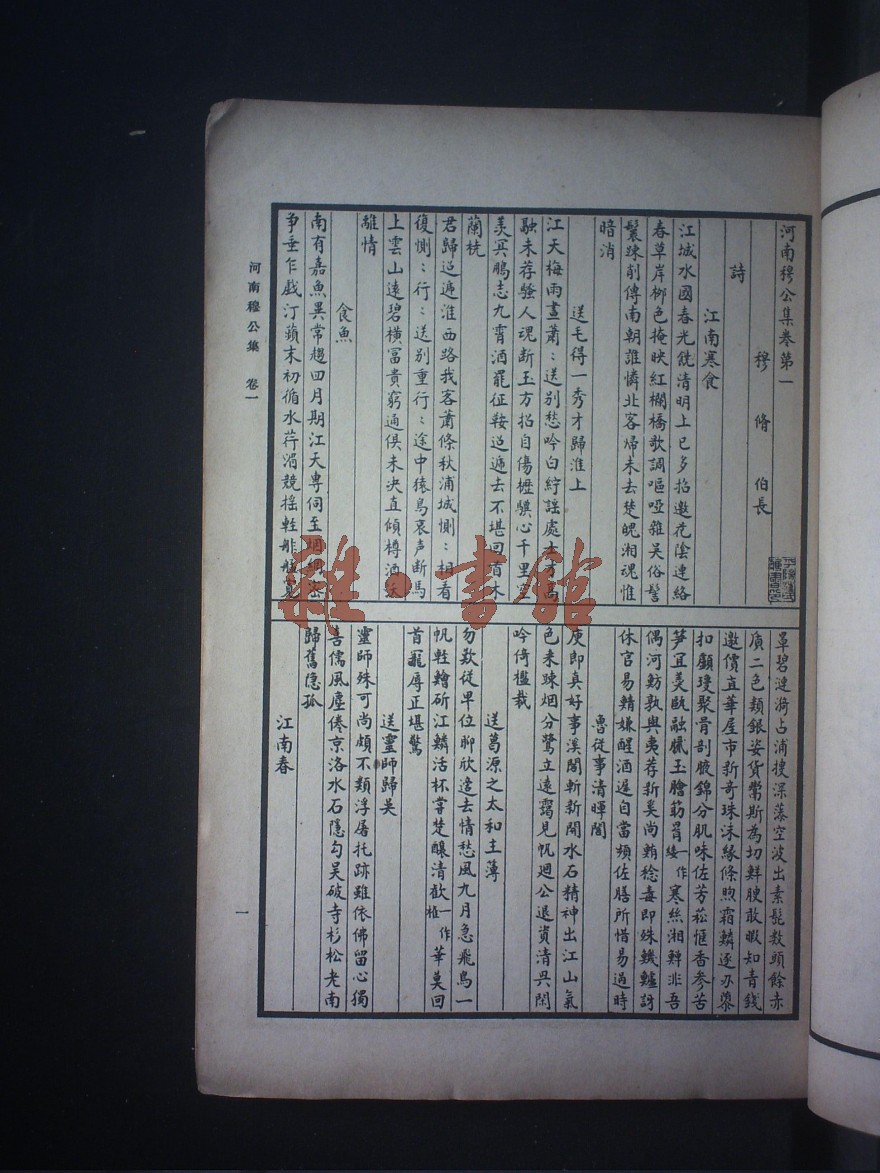 河南穆公集卷第一
穆脩伯長
詩
江南寒食
江城水國春光饒清明上巳多招邀花陰連絡
春草岸柳色掩映紅欄橋歌調嘔啞雜吳俗髻
鬟疎削傳南朝誰憐北客歸未去楚魄湘魂惟
暗消
送毛得一秀才歸淮上
江天梅雨晝蕭：送別愁吟白紵謠處士
融未荐騷人魂断玉方招自傷櫪驥心千里
羡冥鵬志九霄酒罷征鞍迢遞去不堪回首木
蘭桡
君歸迢遞淮西路我客蕭條秋浦城惻：相看
復惻：行：送別重行：途中猿鳥哀声断馬
上雲山遠碧横富貴窮通俱未决直傾樽酒
離情
食魚
南有嘉魚異常趨四月期江天專伺至烟網
爭垂乍戲汀蘋末初循水荇湄競摇輕舴艋
單碧漣漪占浦搜深藻空波出素髭数頭餘赤
質二色類銀姿貨鬻斯為切鮮腴敢暇知青錢
邀價直華屋市新奇珠沫緣條煦霜鱗逐刃
扣顱瓊聚骨剖腴錦分肌味佐芳菘愜香參苦
笋宜羹甌融腻玉膾筯罥縷一作寒絲湘鱘非吾
偶河魴孰與夷荐新奚尚鮪稔毒即殊鱖鱸訝
休官易鯖嫌醒酒遲自當頻佐膳所惜易過時
魯從事清暉閣
庾郎真好事溪閣斬新開水石精神出江山氣
色來疎烟分鷺立遠靄見帆迴公退資清興閑
吟倚檻裁
送葛源之太和主薄
勿歎從卑位聊欣造去情愁風九月急飛鳥一
帆輕鱠斫江鱗活杯甞楚釀清歡一作華莫回
首寵辱正堪驚
送靈師歸吴
靈師殊可尚頗不類浮屠托跡雖依佛留心獨
喜儒風塵倦京洛水石隱勾吴破寺杉松老南
歸舊隐孤
江南春
河南穆公集　卷一
一
雜·書館